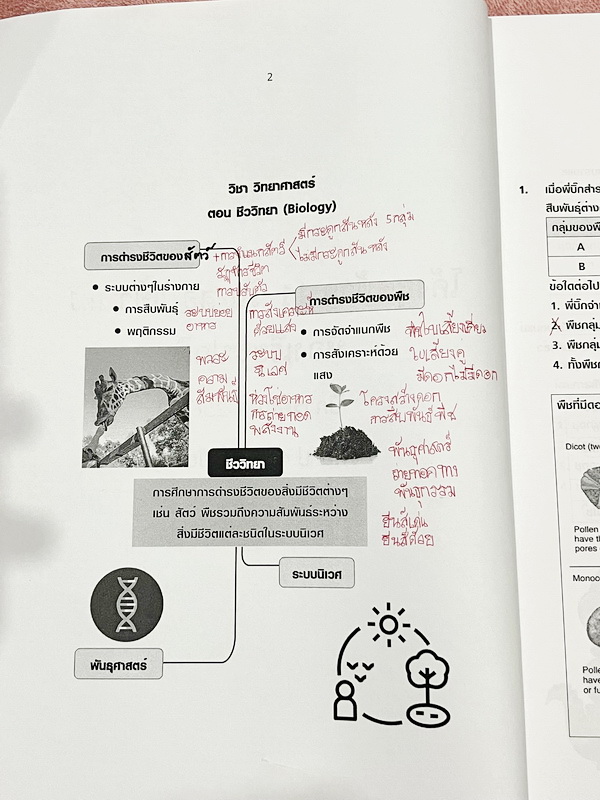 2
วิชา วิทยาศาสตร์
ตอน ชีววิทยา (Biology)
การดำรงชีวิตของสัตว์
+การจำแนกสัตว์
มีกระดูกสันหลัง 5กลุ่ม
ไม่มีกระดูกสันหลัง
วัฏจักรชีวิต
การปรับตัว
ระบบต่างๆในร่างกาย
การสืบพันธุ์
พฤติกรรม
ระบบย่อย
อาหาร
พลระ
ความ
สัมพันธ์
การสังเคราะห์
ด้วยแสง
ระบบ
นิเวศ
ห่วงโซ่อาหาร
การถ่ายทอด
พลังงาน
การดำรงชีวิตของพืช
การจัดจำแนกพืช
การสังเคราะห์ด้วย
แสง
พืชใบเลี้ยงเดี่ยว
ใบเลี้ยงคู่
มีดอกไม่มีดอก
โครงสร้างดอก
การสืบพันธุ์พืช
พันธุศาสตร์
ถ่ายทอดทาง
พันธุกรรม
ยีนส์เด่น
ยีนส์ด้อย
ชีววิทยา
การศึกษาการดำรงชีวิตของสิ่งมีชีวิตต่างๆ
เช่น สัตว์ พืชรวมถึงความสัมพันธ์ระหว่าง
สิ่งมีชีวิตแต่ละชนิดในระบบนิเวศ
ระบบนิเวศ
พันธุศาสตร์
1. เมื่อพี่บิ๊กสำร
สืบพันธุ์ต่าง
กลุ่มของพื
A
B
ข้อใดต่อไป
1. พี่บิ๊กจำ
2. พืชกลุ่ม
3. พืชกลุ่ม
4. ทั้งพืช
พืชที่มีดอ
Dicot (tw
Pollen
have th
pores
Monoc
Polle
have
or fu